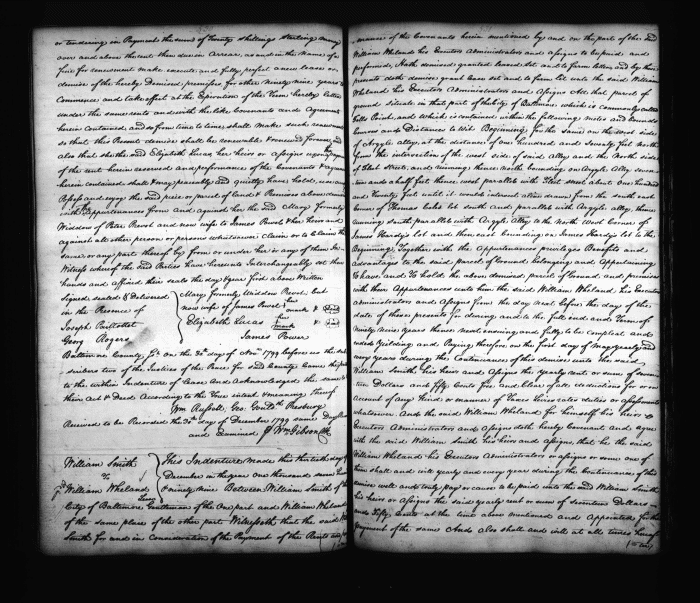 or tendering in Payment the sum of Twenty shillings sterling money
over and above the rent then due or in Arrear, as and in the Name of a
fine for renewment make execute and fully perfect a new lease or
demise of the hereby Demised premises for other Ninety nine years to
Commence and take effect at the Expiration of the Term hereby letten
under the same rents and with the like Covenants and Agreements
herein contained and so from time to time shall make such renewment
so that this Present demise shall be renewable & renewed forever and
also that she the said Elizabeth Lucas her heirs or Assigns upon payment
of the rent herein reserved and performance of the Covenants &
herein contained shall & may peaceably and quietly have hold, use
Possess and enjoy the said piece or parcel of Land & Premises above mentioned
with Appurtenances from and against her the said Mary formerly
Widdow of Peter Revol and now wife to James Revol & her heirs and
against all other person or persons whatsoever Claim or to Claim the
same or any part thereof by from or under her is any of them In
Witness whereof the said Parties have hereunto Interchangeably set their
hands and affixed their seals the day & year first above Written
Signed sealed & delivered
in the Presence of
Joseph
Georg Rogers
Mary formerly Widdow Revol but
now wife of James Revol her mark
Elizabeth Lucas her mark
James Power
Baltimore County Sct. on the 30th day of Novr 1799 before us the sub
scribers two of the Justices of the Peace for said County Came the parties
to the within Indenture of Lease and Acknowledged the same to be
their Act & Deed According to the True intent & meaning thereof
Wm Russell Geo: Presbury
Received to be Recorded the 30th day of December 1799 same Day Recorded
and Examined Wm Gibson Clk
William Smith
To
William Wheland
Lease
This Indenture made this thirtieth day of
December in the year one thousand seven hundred
& ninety nine Between William Smith of the
City of Baltimore Gentleman of the One part and William Wheland
of the same place of the other part Witnesseth that the said William
Smith for and in Consideration of the Payment of the Rents and per
formances of the Covenants herein mentioned by and on the part of the said
William Wheland his Executors Administrators and Assigns to be paid and
performed, Hath demised granted leased set and to farm letten and by these
presents doth demise grant lease set and to farm let unto the said William
Wheland his Executors Administrators and Assigns All that parcel of
ground situate in that part of the City of Baltimore which is commonly called
Fells Point, and which is contained within the following metes and bounds
Courses and Distances to wit Beginning for the same on the west side
of Argyle Alley at the distance of one hundred and seventy feet North
from the intersection of the west side of said Alley and the North side
of Fleet Street and running thence North bounding on Argyle Alley seven
teen and a half feet thence west parallel with Fleet street about one hundred
and twenty feet until it should intersect a line drawn from the south east
corner of Thomas Coles lot south and parallel with Argyle Alley, thence
running south parallel with Argyle Alley to the North West Corner of
James Hardy's lot and then east bounding on James Hardy's lot to the
Beginning, Together with the Appurtenances privileges Benefits and
advantages to the said parcel of Ground belonging and Appertaining
To have and To hold the above demised parcel of Ground and premises
with their Appurtenances unto him the said William Wheland, his Executors
Administrators and Assigns from the day next before the day of the
date of these presents for during and to the full end and Term of
Ninety nine years thence next ensuing and fully to be Compleat and
ended Yielding and Paying therefore on the first day of May yearly and
every years during the Continuance of this demise unto the said
William Smith, his heirs and Assigns the yearly rent or sum of seven
teen Dollars and fifty Cents free and Clear of all deductions for or on
Account of any kind or manner of Taxes heretofore duties or assessments
whatsoever And the said William Wheland for himself his heirs
Executors Administrators and Assigns doth hereby Covenant and agree
with the said William Smith his heirs and Assigns, that he the said
William Wheland his Executors Administrators or Assigns or some one of
them shall and will yearly and every year during the Continuance of this
demise well and truly pay or cause to be paid unto the said William Smith
his heirs or Assigns the said yearly rent or sum of seventeen Dollars
and Fifty Cents at the time above mentioned and Appointed for the
payment of the same And also shall and will at all times hereof